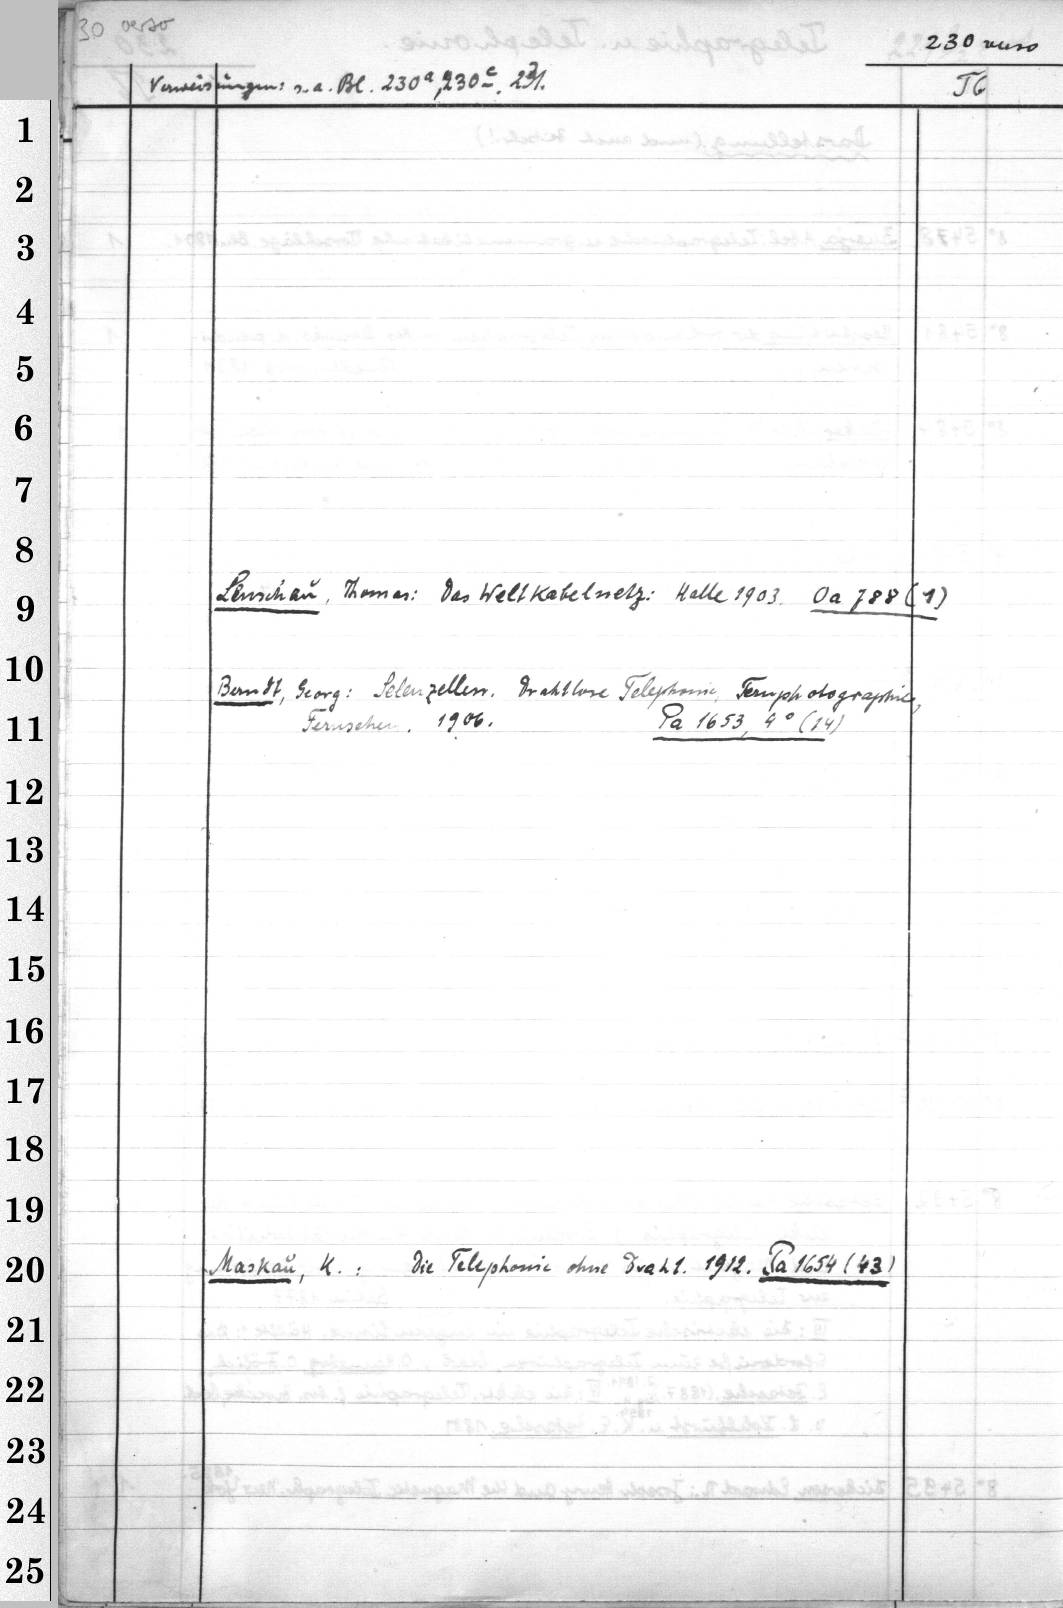 30 verso
230 verso
Verweisungen: s. a. Bl. 230a, 230c, 231.
TG
1
2
3
4
5
6
7
8
Lenschau, Thomas: Das Weltkabelnetz: Halle 1903. Oa 788 (1)
9
10
Berndt, Georg: Selenzellen. Drahtlose Telephonie, Fernphotographie,
11 Fernsehen. 1906. Pa 1653, 4° (14)
12
13
14
15
16
17
18
19
20 Maskau, K.: Die Telephonie ohne Draht. 1912. Pa 1654 (43)
21
22
23
24
25